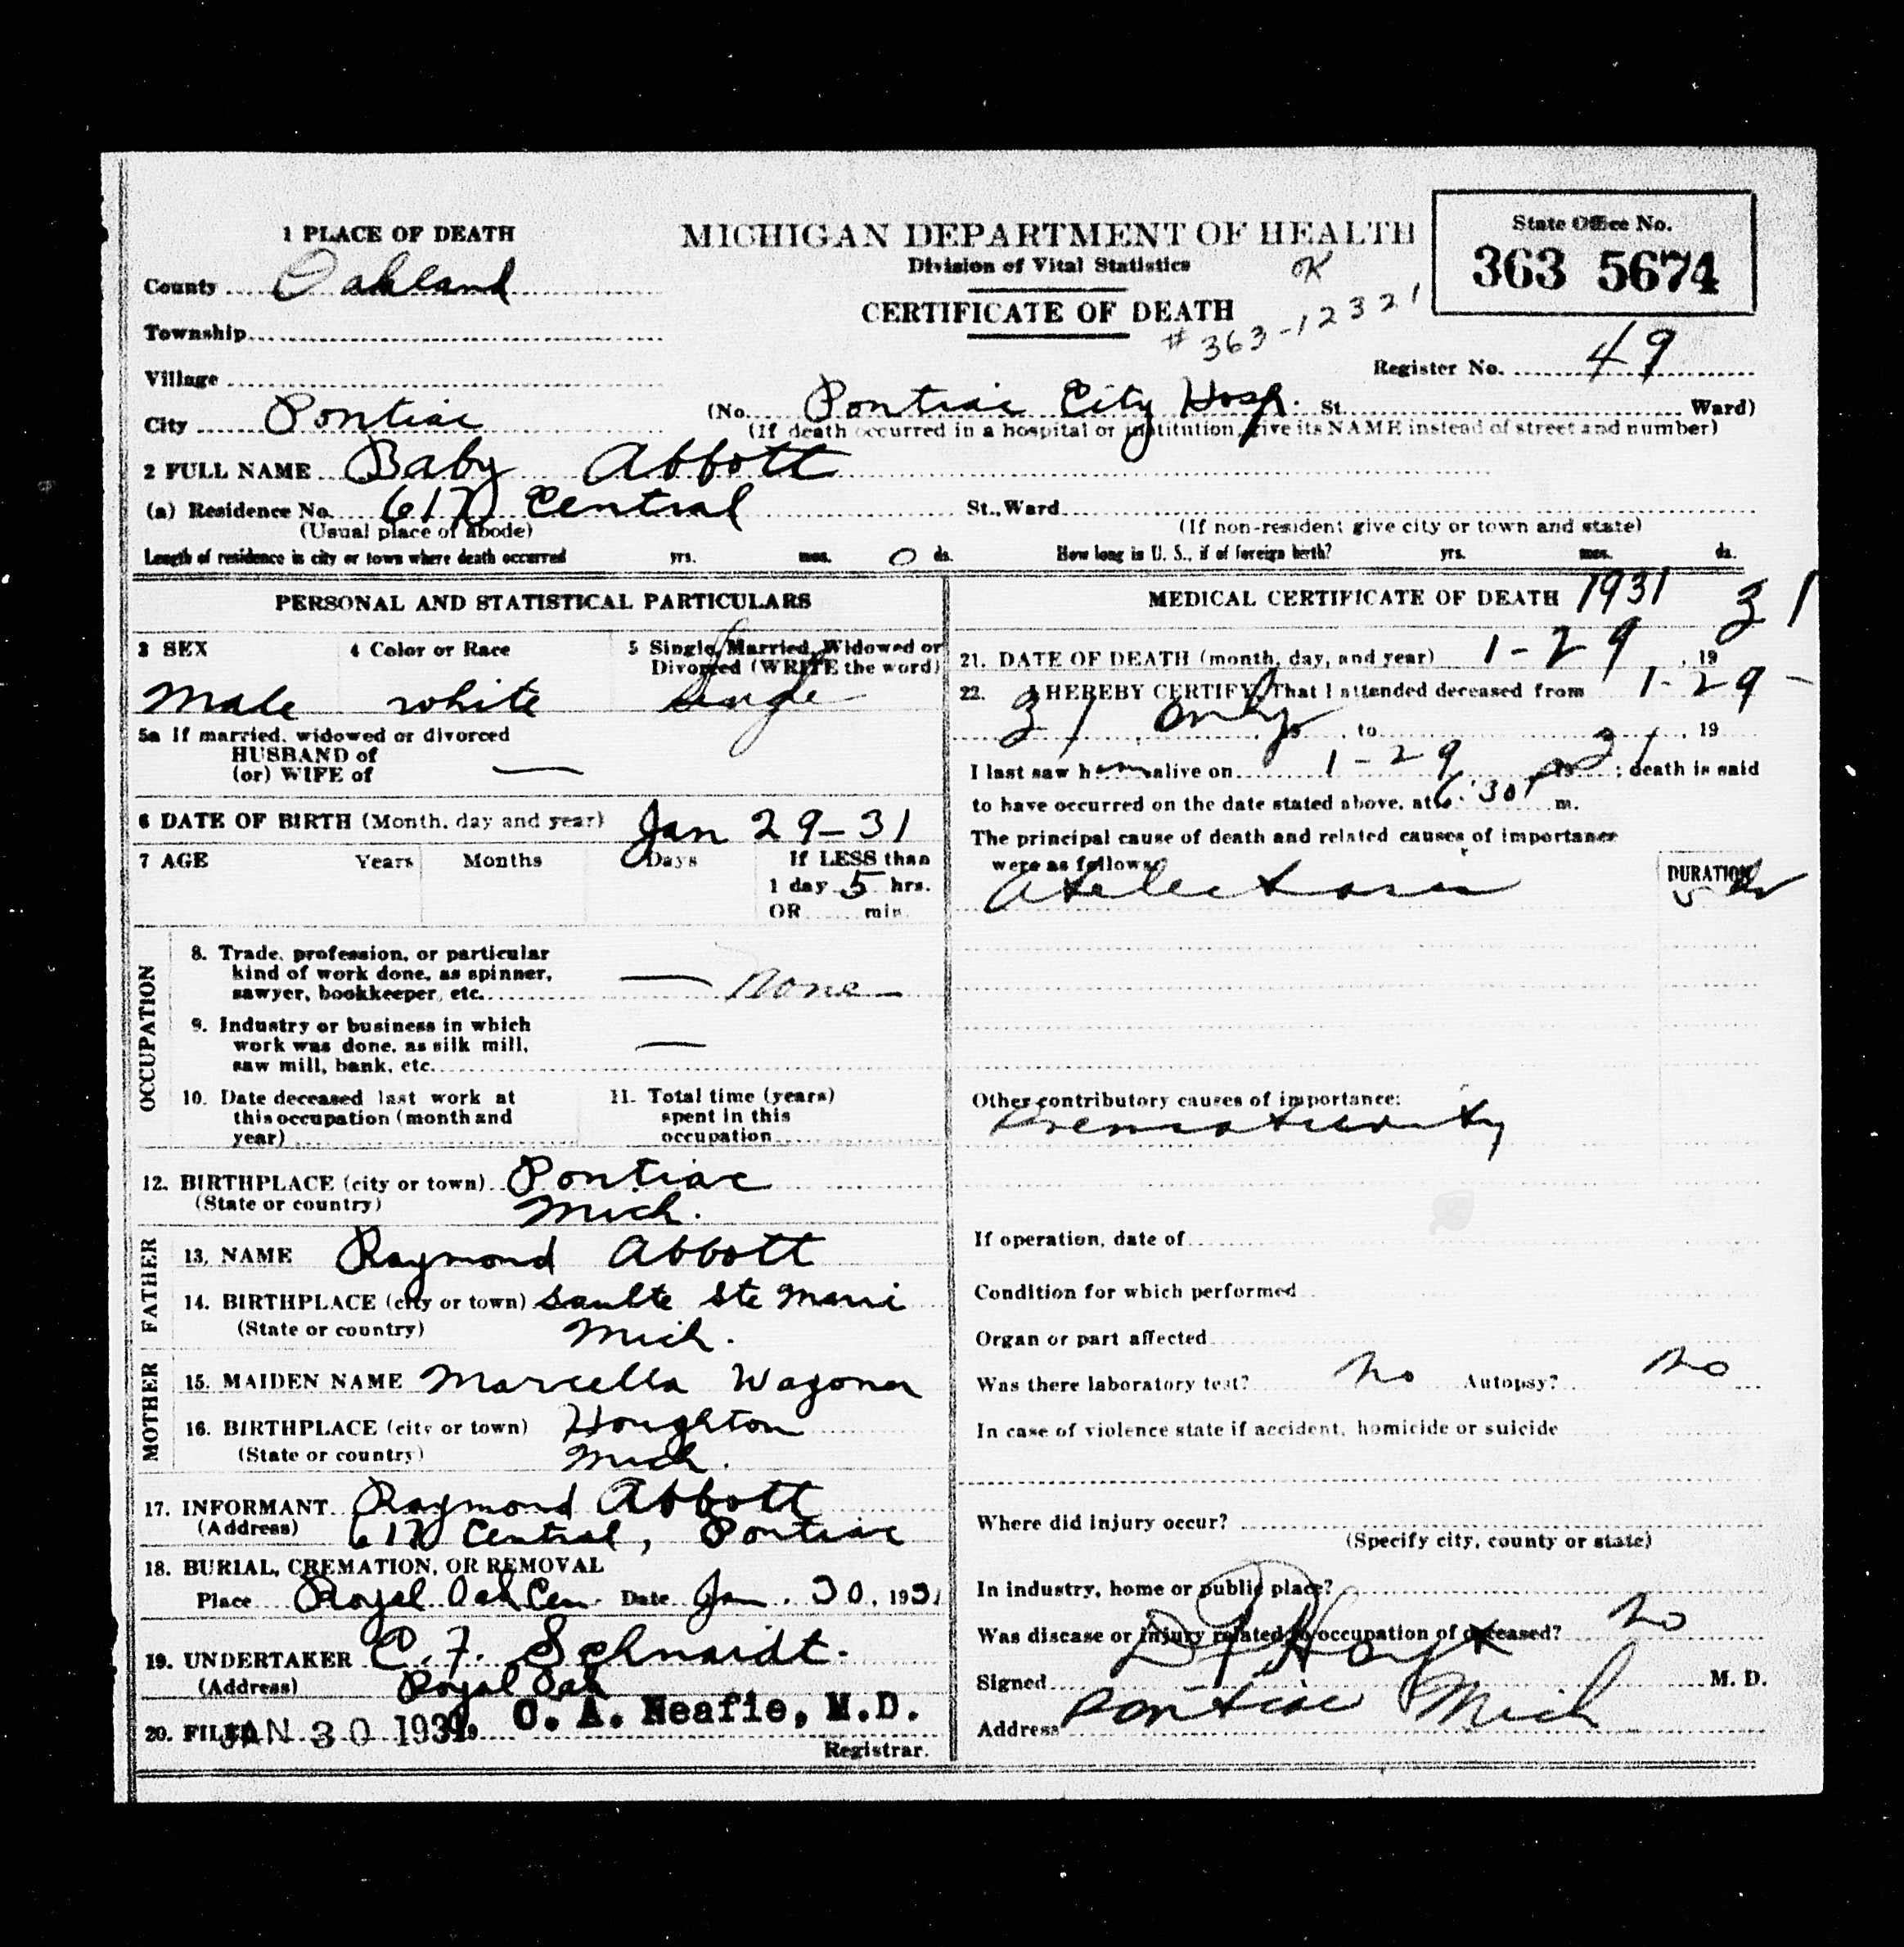 1 PLACE OF DEATH
MICHIGAN DEPARTMENT OF HEALTH
Division of Vital Statistics
K
CERTIFICATE OF DEATH
# 363-12321
State Office No.
363 5674
County Oakland
Township
Register No. 49
Village
City Pontiac (No. Pontiac City Hosp. St. Ward)
(If death occurred in a hospital or institution, give its NAME instead of street and number)
2 FULL NAME Baby Abbott
(a) Residence No. 617 Central St., Ward
(Usual place of abode) (If non-resident give city or town and state)
Length of residence in city or town where death occurred yrs. mos. 0 ds. How long in U. S., if of foreign birth? yrs. mos. ds.
PERSONAL AND STATISTICAL PARTICULARS
3 SEX 4 Color or Race 5 Single, Married, Widowed or
Divorced (WRITE the word)
Male white single
5a If married, widowed or divorced
HUSBAND of
(or) WIFE of —
6 DATE OF BIRTH (Month, day and year) Jan 29-31
7 AGE Years Months Days If LESS than
1 day 5 hrs.
OR min.
OCCUPATION
8. Trade, profession, or particular
kind of work done, as spinner,
sawyer, bookkeeper, etc. — none
9. Industry or business in which
work was done, as silk mill,
saw mill, bank, etc. —
10. Date deceased last work at
this occupation (month and
year)
11. Total time (years)
spent in this
occupation
12. BIRTHPLACE (city or town) Pontiac
(State or country) Mich.
FATHER
13. NAME Raymond Abbott
14. BIRTHPLACE (city or town) Saulte Ste Marie
(State or country) Mich.
MOTHER
15. MAIDEN NAME Marcella Wagoner
16. BIRTHPLACE (city or town) Houghton
(State or country) Mich.
17. INFORMANT Raymond Abbott
(Address) 617 Central, Pontiac
18. BURIAL, CREMATION, OR REMOVAL
Place Royal Oak Cem. Date Jan. 30, 1931
19. UNDERTAKER C. F. Schmidt.
(Address) Royal Oak
20. FILED JAN 30 1931 C. A. Neafie, M.D.
Registrar.
MEDICAL CERTIFICATE OF DEATH 1931
21. DATE OF DEATH (month, day, and year) 1-29, 19 31
22. I HEREBY CERTIFY, That I attended deceased from 1-29-
31 only, to , 19
I last saw him alive on 1-29 19 31; death is said
to have occurred on the date stated above, at 6:30 P m.
The principal cause of death and related causes of importance
were as follows:
DURATION
Atelectasis 5 hr
Other contributory causes of importance:
Prematurity
If operation, date of
Condition for which performed
Organ or part affected
Was there laboratory test? no Autopsy? no
In case of violence state if accident, homicide or suicide
Where did injury occur?
(Specify city, county or state)
In industry, home or public place?
Was disease or injury related to occupation of deceased? no
Signed M. D.
Address Pontiac Mich